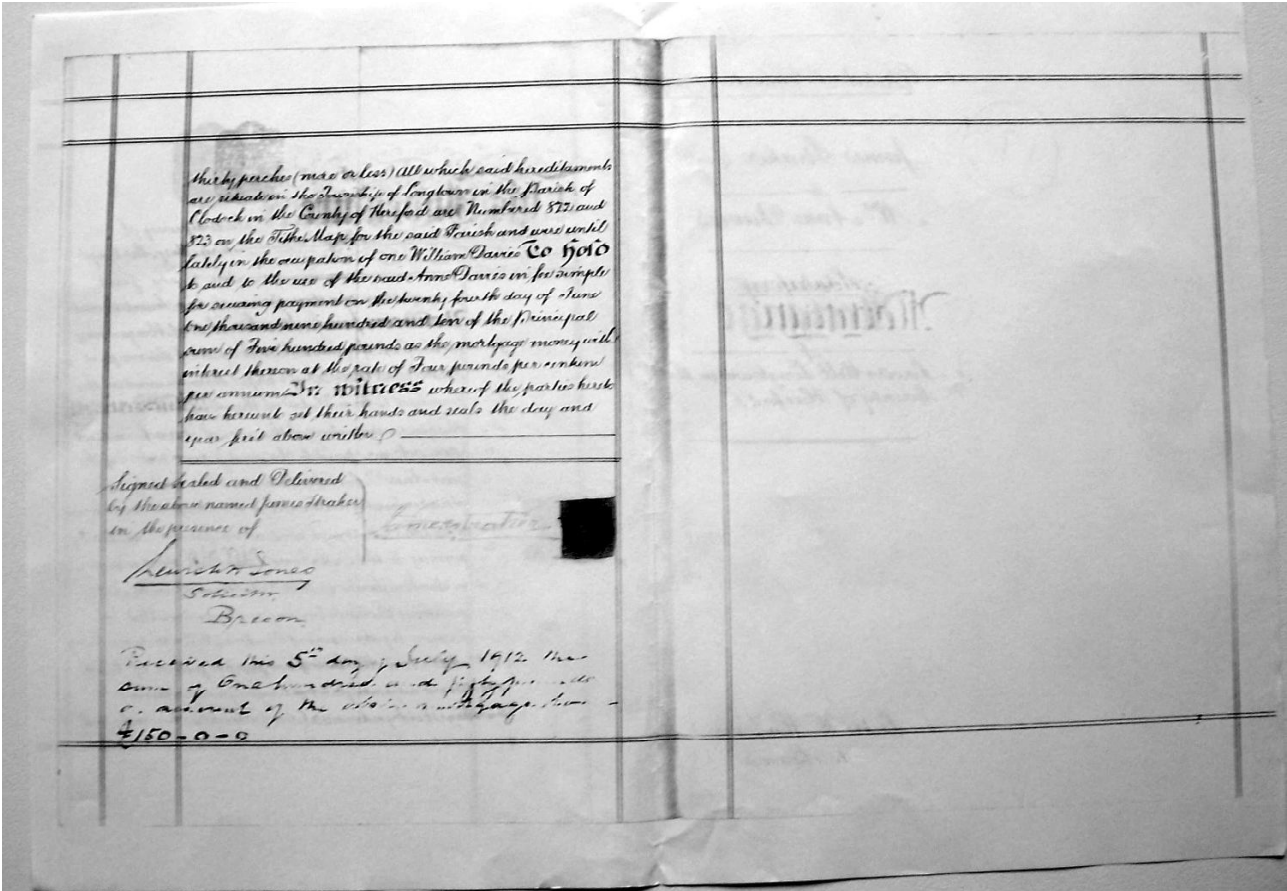 thirty perches (more or less) All which said hereditaments
are situate in the Township of Longtown in the Parish of
Clodock in the County of Hereford are Numbered 822 and
823 on the Tithe Map for the said Parish and were until
lately in the occupation of one William Davies To Hold
to and to the use of the said Anne Davies in fee simple
for securing payment on the twenty fourth day of June
one thousand nine hundred and ten of the Principal
sum of Five hundred pounds as the mortgage money with
interest thereon at the rate of Four pounds per centum
per annum In witness whereof the parties hereto
have hereunto set their hands and seals the day and
year first above written
Signed Sealed and Delivered
by the above named James Straker
in the presence of
James Straker
Jones
Solicitor
Brecon
Received this 5th day of July 1912 the
sum of One hundred and fifty pounds
on account of the above mortgage
£150-0-0